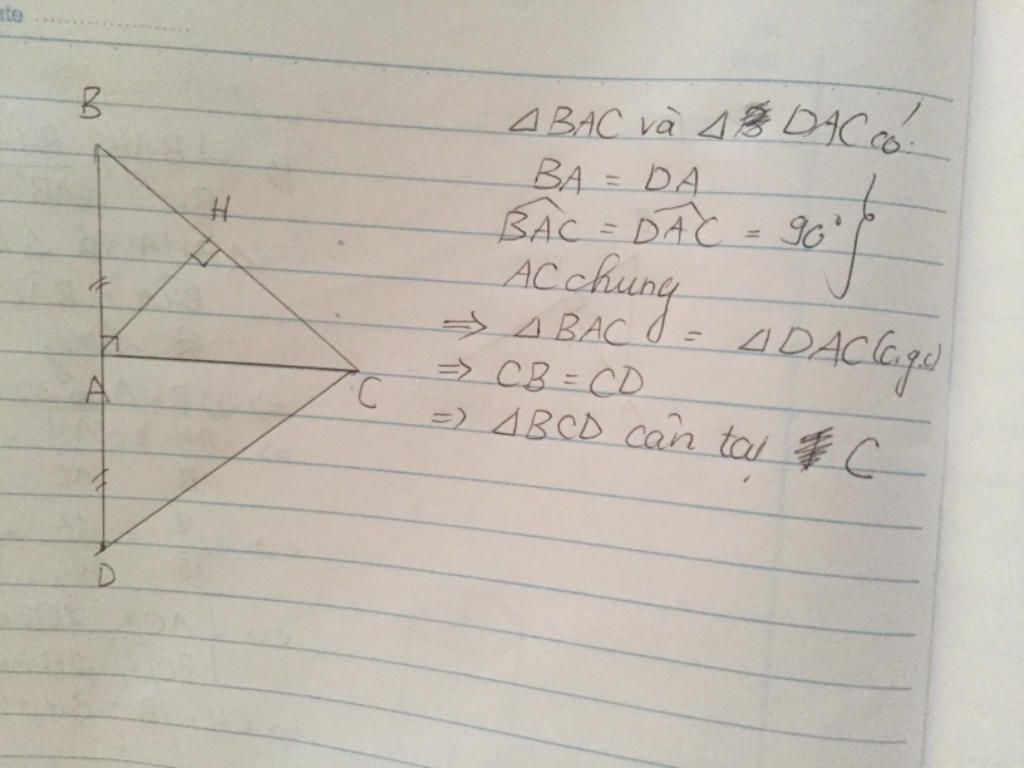 B
H
A
C
D
△BAC và △ DAC có:
BA = DA
BAC = DAC = 90°
AC chung
⇒ △BAC = △DAC (c.g.c)
⇒ CB = CD
⇒ △BCD cân tại C